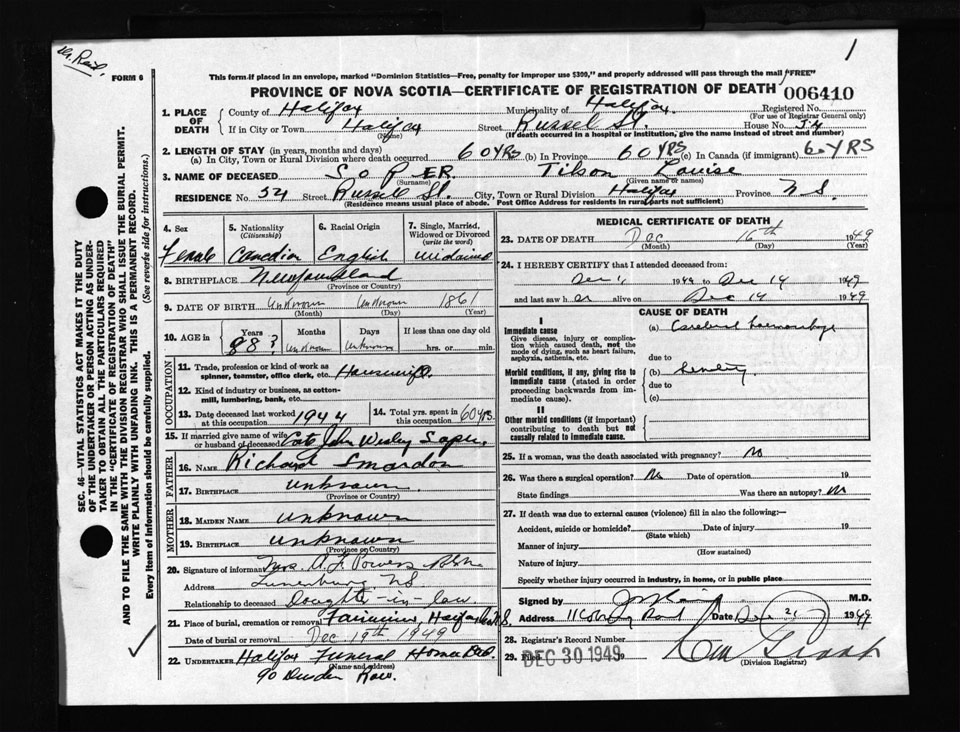 Dr. Reid.
1
FORM 6
This form if placed in an envelope, marked "Dominion Statistics—Free, penalty for improper use $300," and properly addressed will pass through the mail "FREE"
PROVINCE OF NOVA SCOTIA—CERTIFICATE OF REGISTRATION OF DEATH 006410
1. PLACE OF DEATH
County of Halifax Municipality of Halifax. Registered No.
(For use of Registrar General only)
If in City or Town Halifax (Name) Street Russel St. House No. 54
(If death occurred in a hospital or institution, give the name instead of street and number)
2. LENGTH OF STAY (in years, months and days)
(a) In City, Town or Rural Division where death occurred 60 YRS (b) In Province 60 YRS (c) In Canada (if immigrant) 60 YRS
3. NAME OF DECEASED SOPER Tilson Louise
(Surname) (Given name or names)
RESIDENCE No. 54 Street Russell St. City, Town or Rural Division Halifax Province N S.
(Residence means usual place of abode. Post Office Address for residents in rural parts not sufficient)
4. Sex 5. Nationality (Citizenship) 6. Racial Origin 7. Single, Married, Widowed or Divorced (write the word)
Female Canadian English widowed
8. BIRTHPLACE Newfoundland
(Province or Country)
9. DATE OF BIRTH Unknown Unknown 1861
(Month) (Day) (Year)
10. AGE in Years Months Days If less than one day old
88? Unknown Unknown hrs. or min.
OCCUPATION
11. Trade, profession or kind of work as spinner, teamster, office clerk, etc. Housewife.
12. Kind of industry or business, as cotton-mill, lumbering, bank, etc.
13. Date deceased last worked at this occupation 1944 14. Total yrs. spent in this occupation 60 yrs.
15. If married give name of wife or husband of deceased Capt John Wesley Soper.
FATHER
16. NAME Richard Smardon
17. BIRTHPLACE unknown.
(Province or Country)
MOTHER
18. MAIDEN NAME unknown
19. BIRTHPLACE unknown
(Province or Country)
20. Signature of informant Mrs. A. F. Powers
Address Lunenburg N.S.
Relationship to deceased Daughter-in-law
21. Place of burial, cremation or removal Fairview, Halifax N.S.
Date of burial or removal Dec 19th 1949
22. UNDERTAKER Halifax Funeral Home
(Name and address)
90 Row.
MEDICAL CERTIFICATE OF DEATH
23. DATE OF DEATH Dec 16th 1949
(Month) (Day) (Year)
24. I HEREBY CERTIFY that I attended deceased from:
Dec 1 1949 to Dec 14 1949
and last saw her alive on Dec 14 1949
CAUSE OF DEATH
I
Immediate cause (a) Cerebral haemorrhage
Give disease, injury or complication which caused death, not the mode of dying, such as heart failure, asphyxia, asthenia, etc.
due to
Morbid conditions, if any, giving rise to immediate cause (stated in order proceeding backwards from immediate cause).
(b) Senility
due to
(c)
II
Other morbid conditions (if important) contributing to death but not causally related to immediate cause.
25. If a woman, was the death associated with pregnancy? No
26. Was there a surgical operation? No Date of operation 19
State findings Was there an autopsy? No
27. If death was due to external causes (violence) fill in also the following:—
Accident, suicide or homicide? Date of injury 19
(State which)
Manner of injury
(How sustained)
Nature of injury
Specify whether injury occurred in industry, in home, or in public place
Signed by M.D.
Address Road Date Dec 1949
28. Registrar's Record Number
29. Filed DEC 30 1949 19
(Division Registrar)
SEC. 46—VITAL STATISTICS ACT MAKES IT THE DUTY OF THE UNDERTAKER OR PERSON ACTING AS UNDERTAKER TO OBTAIN ALL THE PARTICULARS REQUIRED IN THE "CERTIFICATE OF REGISTRATION OF DEATH" AND TO FILE THE SAME WITH THE DIVISION REGISTRAR WHO SHALL ISSUE THE BURIAL PERMIT.
WRITE PLAINLY WITH UNFADING INK. THIS IS A PERMANENT RECORD.
Every item of information should be carefully supplied. (See reverse side for instructions.)